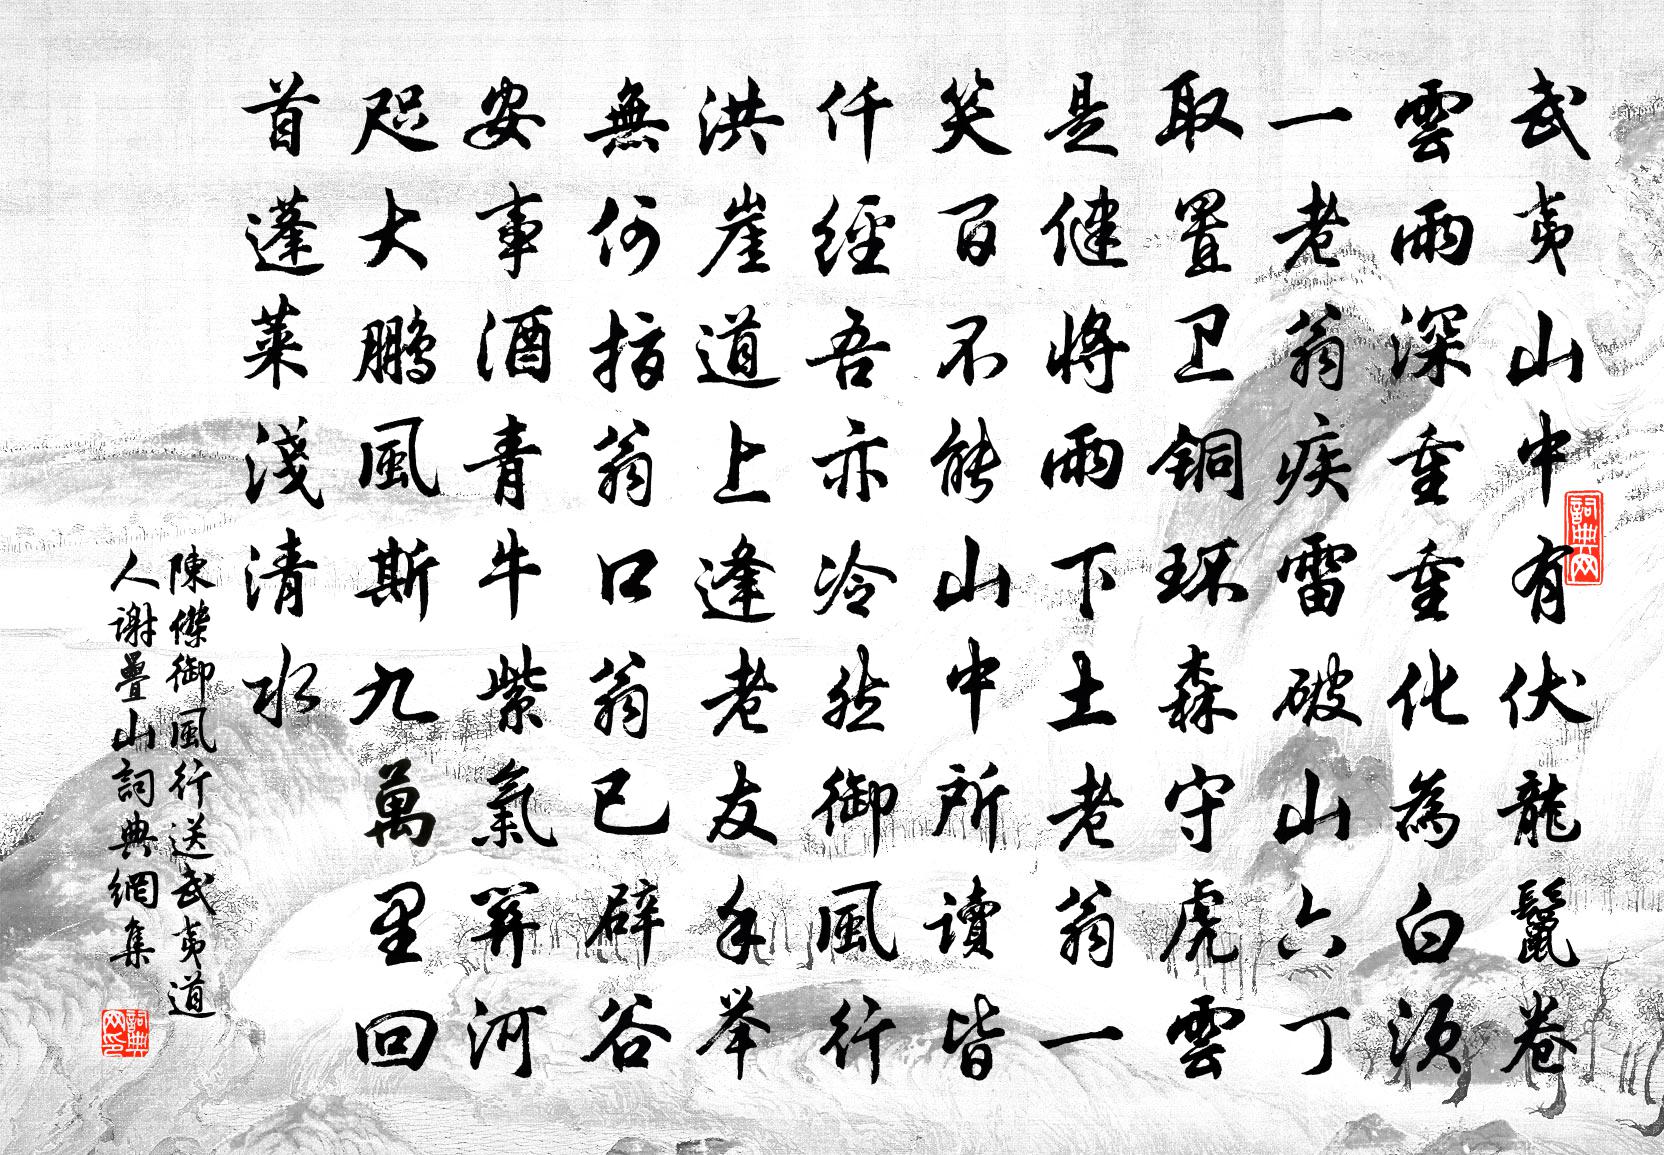 武夷山中有伏龍鬣卷
雲雨深重重化為白须
一老翁疾雷破山六丁
取置卫铜环森守虎雲
是健將雨下土老翁一
笑百不能山中所讀皆
仟經吾亦冷然御風行
洪崖道上逢老友手举
無何指翁口翁已辟谷
安事酒青牛紫氣開河
咫大鵬風斯九萬里回
首蓬萊淺清水
陳傑御風行送武夷道
人謝疊山詞典網集
詞典网
詞典网印